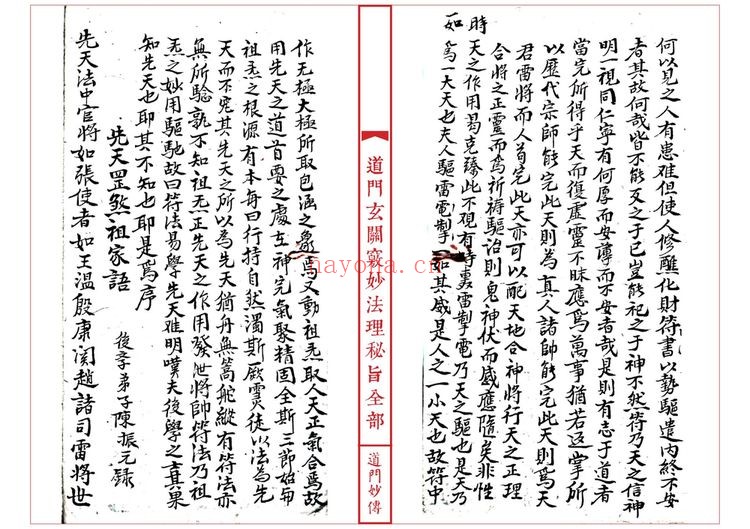 何以見之人有患难但使人修醮化財符書以势驅遣内終不安
者其故何哉皆不能反之于已豈能祀之于神不然符乃天之信神
明一視同仁寧有何厚而安薄而不安者哉是則有志于道者
當完所得乎天而復虚靈不昧應為萬事猶若运掌所
以歷代宗師能完此天則為真人諸師能完此天則爲天
君雷將而人苟完此天亦可以配天地合神將行天之正理
合將之正靈而為祈祷驅治則鬼神伏而感應随矣非性
時天之作用曷克臻此不覌有時轰雷掣电乃天之驅也是天乃
如為一大天也夫人驅雷電掣如其感是人之一小天也故符中
道門玄關竅妙法理秘旨全部
道門妙傳
nayona.cn
作无極太極所取包涵之象焉又動祖炁取人天正氣合爲故
用先天之道首要之處在神完氣聚精固全斯三節始毋
祖炁之根源有本每曰行持自然濁斯厥灵徒以法為先
天而不究其先天之所以為先天猶舟無蒿舵縱有符法亦
無所驗孰不知祖炁正先天之作用發泄將帥符法乃祖
炁之妙用驅馳故曰符法易學先天难明嘆夫後學之者其果
知先天也耶其不知也耶是爲序
後学弟子陳振元录
先天罡煞祖家語
先天法中官將如張使者如王温殷康関趙諸司雷將世